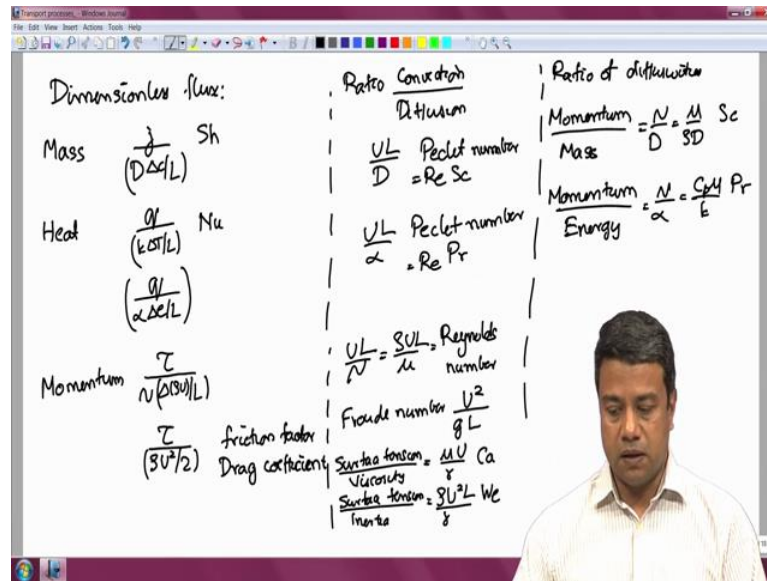 Transport processes_ - Windows Journal
File Edit View Insert Actions Tools Help
Dimensionless flux:
Mass j/(DΔc/L) Sh
Heat q/(kΔT/L) Nu
(q/αΔe/L)
Momentum τ/ν(Δ(ρU)/L)
τ/(ρU²/2) friction factor
Drag coefficient
Ratio Convection/Diffusion
UL/D Peclet number
= Re Sc
UL/α Peclet number
= Re Pr
UL/ν = ρUL/μ = Reynolds
number
Froude number U²/gL
Surface tension/Viscosity = μU/γ Ca
Surface tension/Inertia = ρU²L/γ We
Ratio of diffusivities
Momentum/Mass = ν/D = μ/ρD Sc
Momentum/Energy = ν/α = Cpμ/k Pr